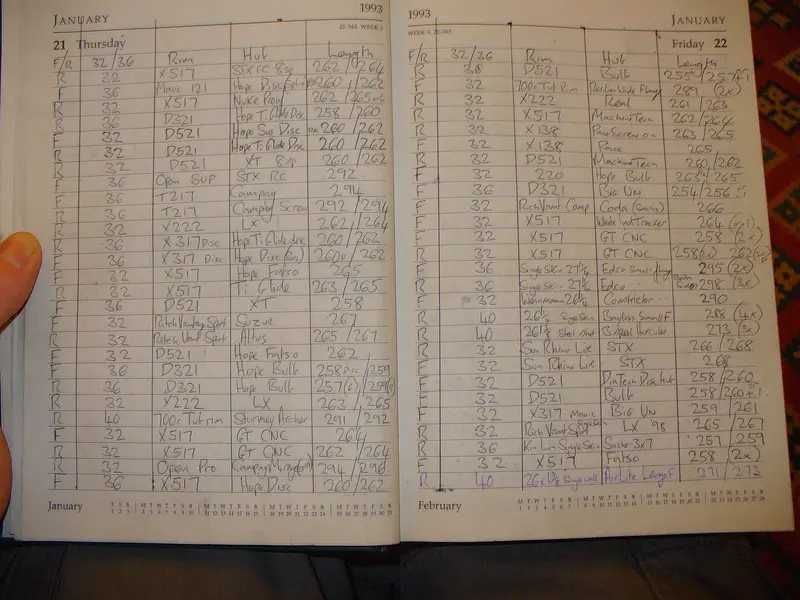 JANUARY 1993
21-344 WEEK 3
21 Thursday
F/R 32/36 Rim Hub Length
R 32 X517 STX RC 8sp 262/264
F 36 Mavic 121 Hope Disc 260/262
R 32 X517 Nuke Proof 262/265
R 36 D321 Hope Ti Glide Disc 258/260
F 32 D521 Hope Sus Disc 260/262
R 32 D521 Hope Ti Glide Disc 260/262
R 32 D521 XT 8sp 260/262
F 36 Open Sup STX RC 292
F 36 T217 Campag 294
R 36 T217 Campag Screw 292/294
F 32 X222 LX 262/264
R 36 X317 Disc Hope Ti Glide disc 260/262
F 36 X317 Disc Hope Disc 260/262
F 32 X517 Hope Fatso 265
R 32 X517 Ti Glide 263/265
F 36 D521 XT 258
F 32 Suzue 267
R 32 Altus 265/267
F 32 D521 Hope Fatso 262
F 36 D321 Hope Bulb 258 Disc/259
R 36 D321 Hope Bulb 257
R 32 X222 LX 263/265
R 40 700c Tuf rim Sturmey Archer 291/292
F 32 X517 GT CNC 264
R 32 X517 GT CNC 262/264
R 32 Open Pro 294/296
F 36 X517 Hope Disc 260/262
January
1993 JANUARY
WEEK 3 22-343
Friday 22
F/R 32/36 Rim Hub Length
R 36 D521 Bulb 255
F 32 700c Tuf Rim 289 (2x)
R 32 X222 Real 261/263
R 32 X517 Machine Tech 262/264
R 32 X138 Pace Screw on 263/265
F 32 X138 Pace 265
R 32 D521 Machine Tech 260/262
F 32 220 Hope Bulb 263/265
F 36 D321 Big Un 254/256
F 32 Rich Vant Comp Coda (Sachs) 266
F 32 X517 264
F 32 X517 GT CNC 258 (2x)
R 32 X517 GT CNC 258
F 36 Single Skin 27 1/4 Edco Small flange 295 (2x)
R 36 Single Skin 27 1/4 Edco 298 (3x)
F 32 Constrictor 290
R 40 Bayliss Small F 288 (4x)
R 40 3 speed Hercules 273 (3x)
R 32 Sun Rhino Lite STX 266/268
F 32 Sun Rhino Lite STX 268
F 32 D521 DiaTech Disc hub 258/260
F 32 D521 Bulb 258/260
F 32 X317 Mavic Big Un 259/261
R 32 Rich Vant Sport LX 98 265/267
R 36 Kin Lin Single Skin Sachs 3x7 257/259
F 32 X517 Fatso 258 (2x)
R 40 Airlite Large F 271/273
February